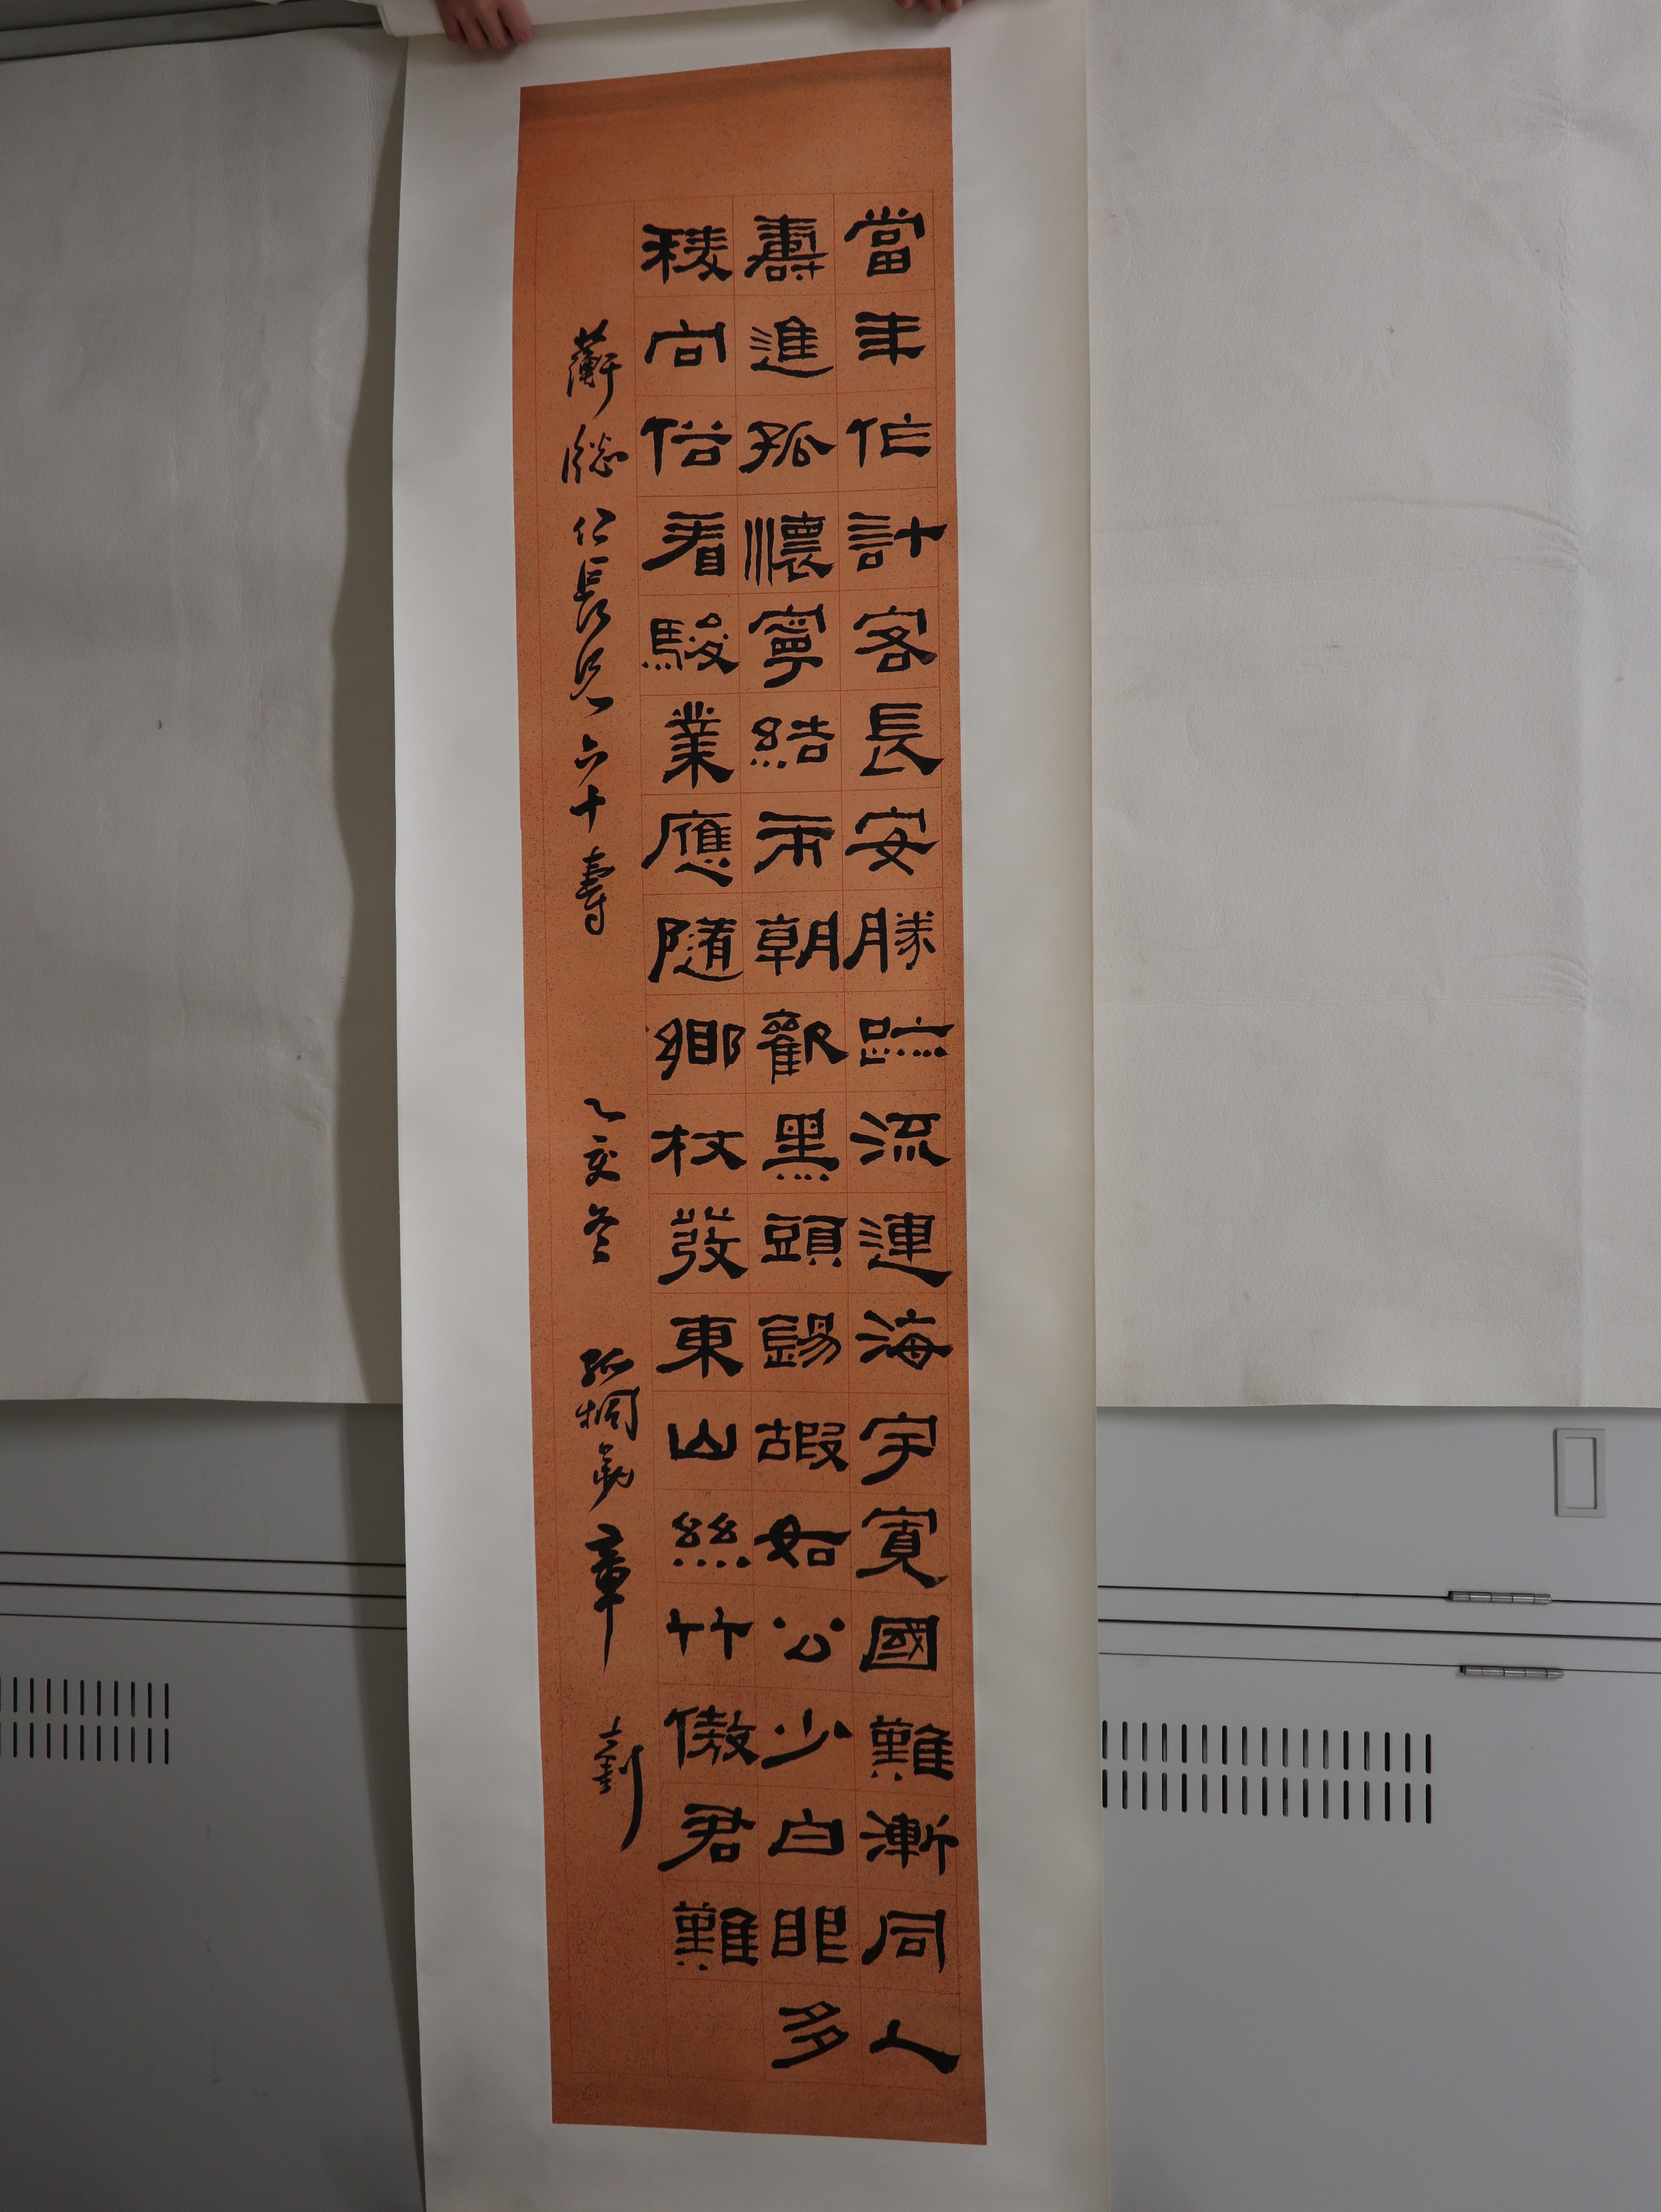 當年作計客長安勝跡流連海宇寬國難漸同人
壽進孤懷寧結兩朝歡黑頭錫嘏如公少白眼多
稜向俗看駿業應隨鄉杖發東山絲竹傲君難
蘅牕仁長兄六十壽 乙亥冬 孤桐弟章士釗